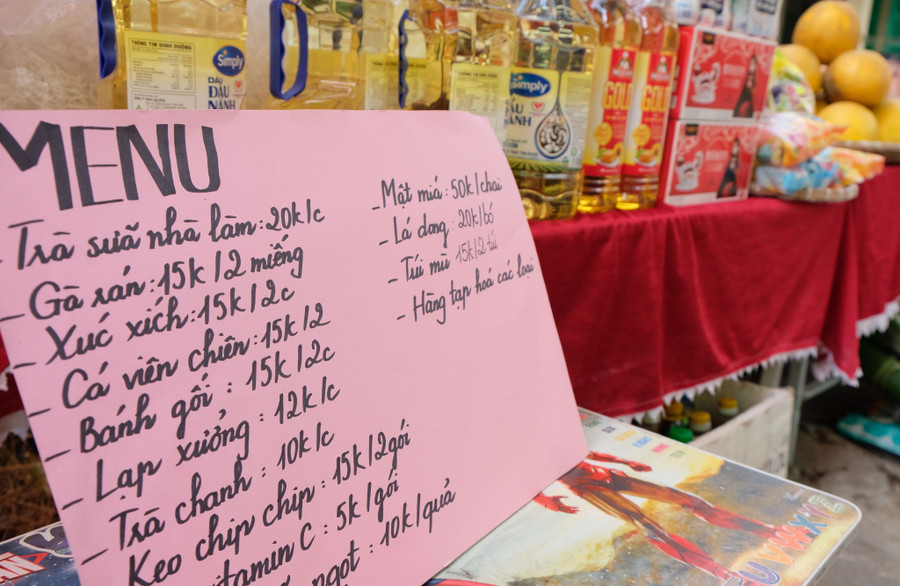 MENU
- Trà sữa nhà làm: 20k/c
- Gà rán: 15k/2 miếng
- Xúc xích: 15k/2c
- Cá viên chiên: 15k/2
- Bánh gối: 15k/2c
- Lạp xưởng: 12k/c
- Trà chanh: 10k/c
Kẹo chip chip: 15k/2gói
vitamin C: 5k/gói
ngọt: 10k/quả
- Mật mía: 50k/chai
- Lá dong: 20k/bó
- Túi mù 15k/2 túi
- Hàng tạp hoá các loại
THÔNG TIN DINH DƯỠNG
Simply
DẦU
ĐẬU
NÀNH
Simply
ĐẬU NÀNH
GOLD
GOLD